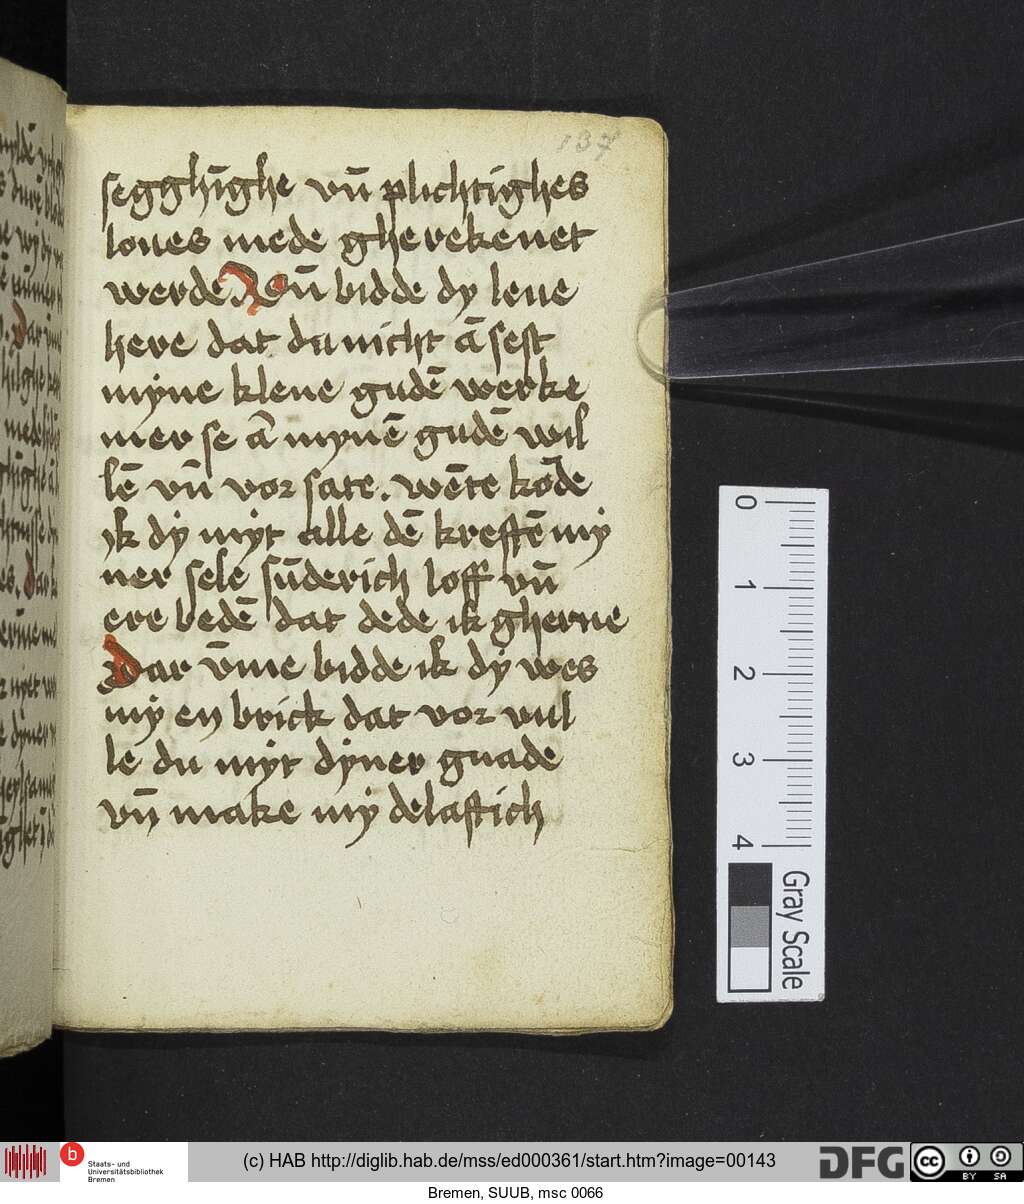 137
segghīghe vn̄ plichtighes
loues mede gherekenet
werde Vn̄ bidde dy leue
here dat du nicht ā sest
myne klene gudē werke
mer se ā mynē gudē wil
lē vn̄ vor sate. wēte kōde
ik dy myt alle dē kreftē my
ner sele sūderich loff vn̄
ere bedē dat dede ik gherne
Dar v̄me bidde ik dy wes
my en brick dat vor vul
le du myt dyner gnade
vn̄ make my delaftich
0
1
2
3
4
Gray Scale
b
Staats- und
Universitätsbibliothek
Bremen
(c) HAB http://diglib.hab.de/mss/ed000361/start.htm?image=00143
DFG
cc
BY SA
Bremen, SUUB, msc 0066